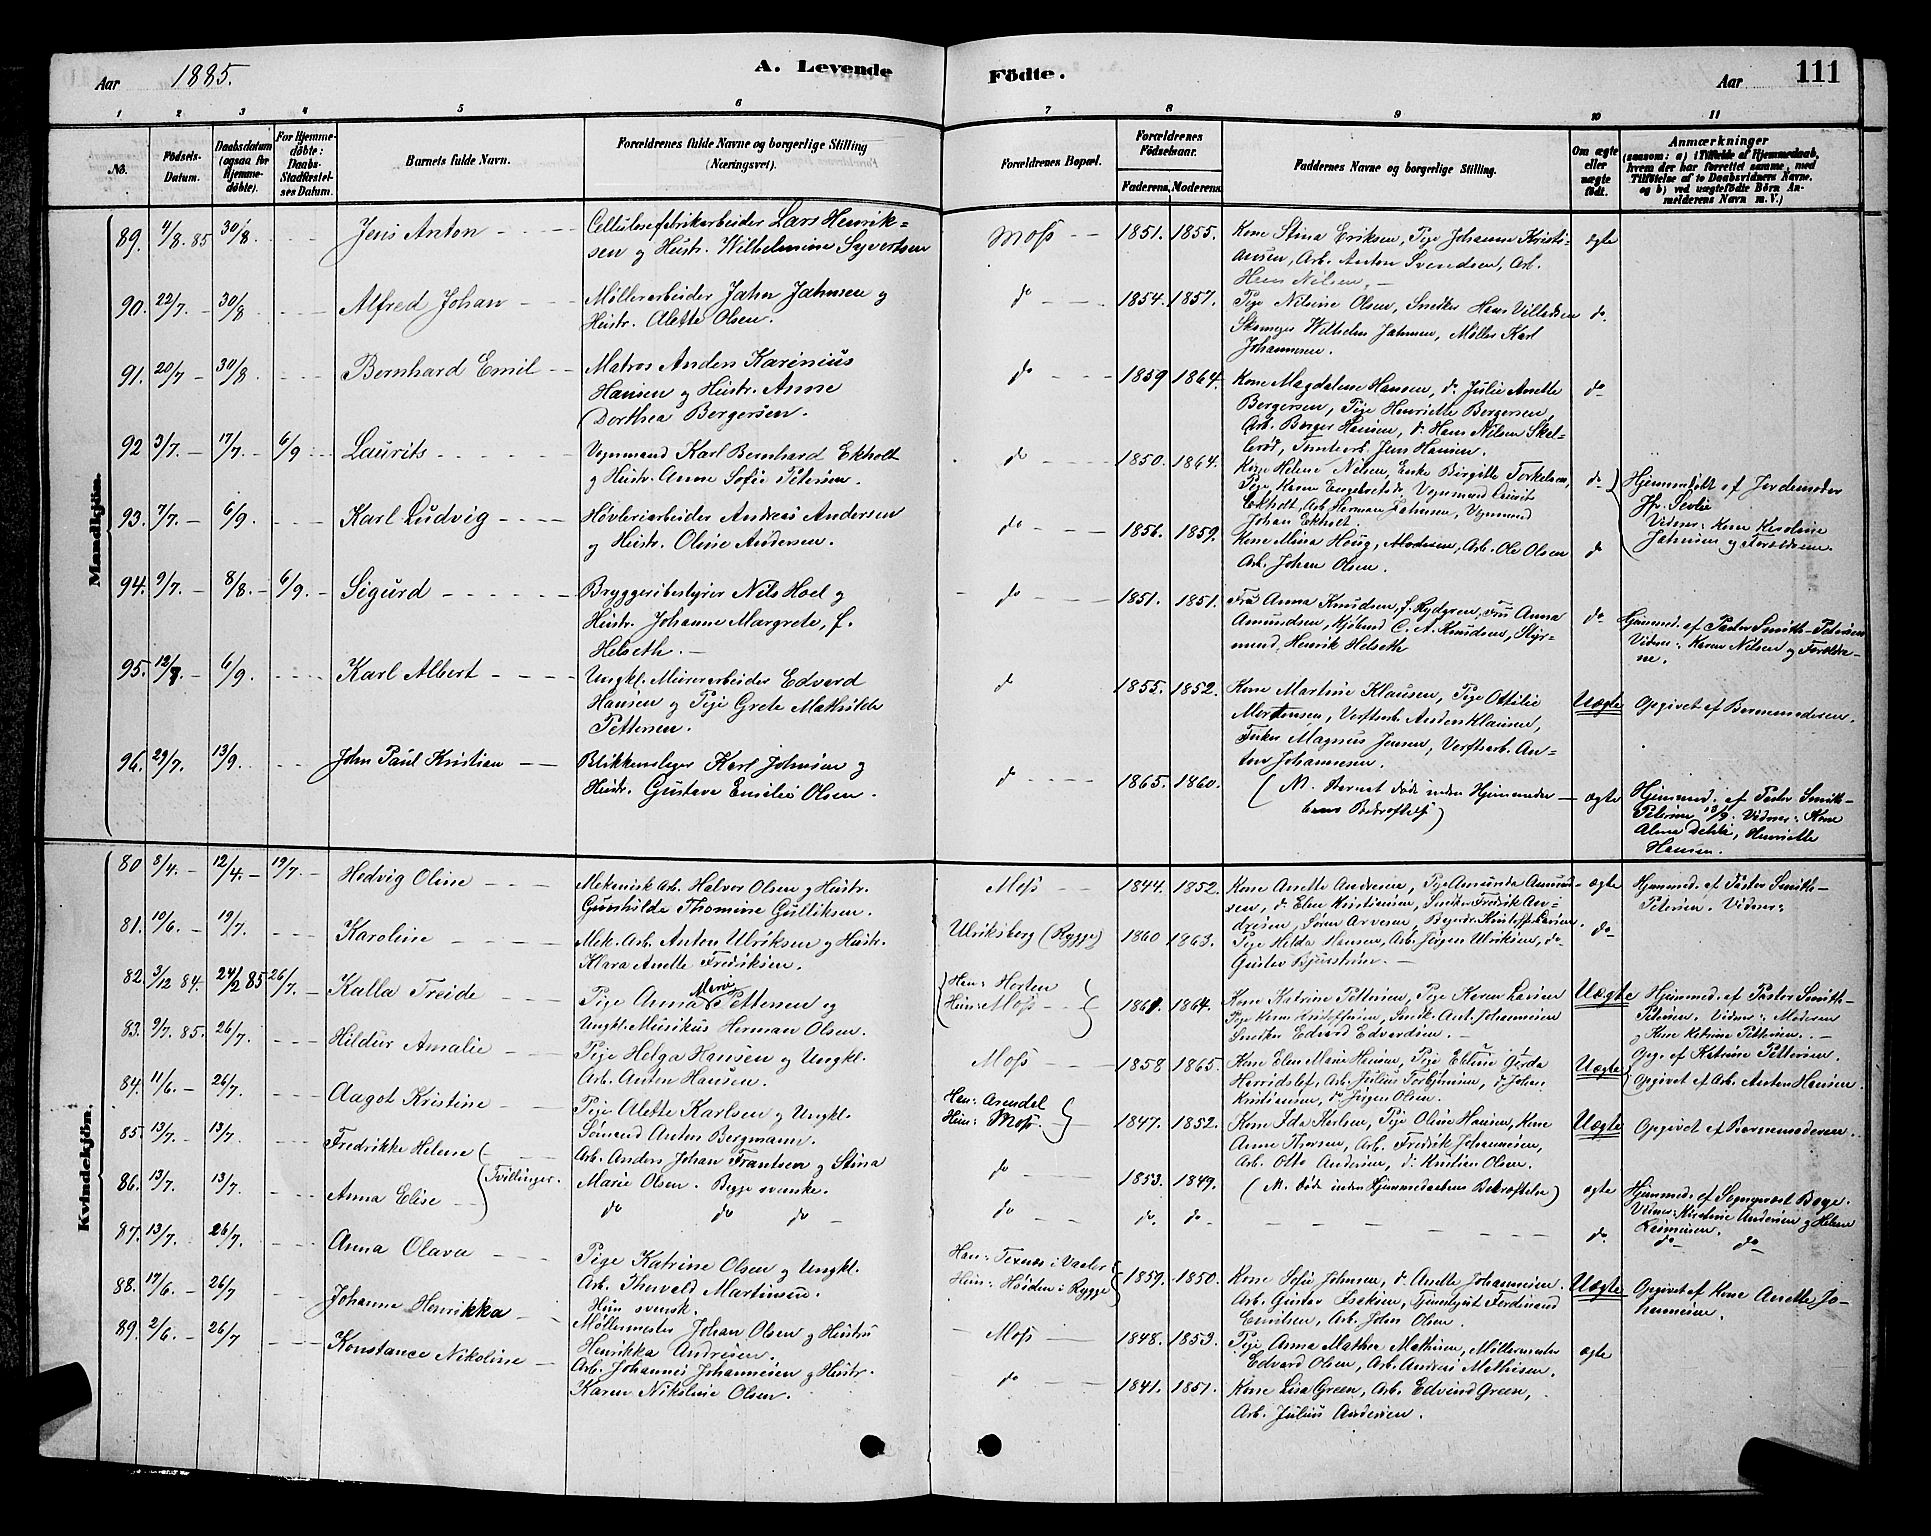 Aar 1885. A. Levende Födte. Aar 111
1 2 3 4 5 6 7 8 9 10 11
No. Födsels-Datum. Daabsdatum (ogsaa for Hjemmedöbte). For Hjemmedöbte: Daabs-Stadfæstelses Datum. Barnets fulde Navn. Forældrenes fulde Navne og borgerlige Stilling (Næringsvei). Forældrenes Bopæl. Forældrenes Födselsaar. Faderens. Moderens. Faddernes Navne og borgerlige Stilling. Om ægte eller uægte födt. Anmærkninger (saasom: a) i Tilfælde af Hjemmedaab, hvem der har forrettet samme, med Tilföielse af to Daabsvidners Navne, og b) ved uægtefödte Börn Anmelderens Navn m. V.)
Mandkjön.
89. 4/8. 85 30/8 Jens Anton Cellulosefabrikarbeider Lars Henrik- Moss 1851. 1855. Kone Stina Eriksen, Pige Johanne Kristi- ægte
sen og Hustr. Wilhelmine Syvertsen ansen, Arb. Anton Svendsen, Arb.
Hans Nilsen. -
90. 22/7. 30/8 Alfred Johan Møllerarbeider Jahn Jahnsen og do 1854. 1857. Pige Nilsine Olsen, Snedker Hans Villadsen do.
Hustr. Alette Olsen. Wilhelm Jahnsen, Møller Karl
Johannesen.
91. 20/7 30/8 Bernhard Emil Matros Anders Karinius do 1859 1864. Kone Magdalene Hansen, do Julie Anette do
Hansen og Hustr. Anne Bergersen, Pige Henriette Bergersen,
Dorthea Bergersen. Arb. Berger Hansen, do Hans Nilsen
Jens Hansen.
92 3/7. 17/7. 6/9 Laurits Vognmand Karl Bernhard Ekholt do 1850. 1864. Kone Helene Nilsen, Enke Birgitte Torkelsen, do Hjemmedøbt af Jordemoder
og Hustr. Anne Sofie Petersen. Pige Karen Vognmand
Ekholt, Arb. Herman Jahnsen, Vognmand
Johan Ekholt. Vidner: Kone Karoline
Jahnsen og Forældrene.
93. 7/7. 6/9. Karl Ludvig Høvleriarbeider Andreas Andersen do 1856. 1859. Kone Mina Haug, Moderen, Arb. Ole Olsen do
og Hustr. Oline Andersen. Arb. Johan Olsen.
94. 9/7. 8/8. 6/9 Sigurd Bryggeribestyrer Nils Hoel og do 1851. 1851. Fru Anna Knudsen, f. Rydgren, Fru Anna do Hjemmed. af Pastor Smith-Petersen
Hustr. Johanne Margrete, f. Amundsen, C. A. Knudsen, Styr- Vidner: Karen Nilsen og Forældre-
Helseth. - mand Henrik Helseth ne.
95. 12/8. 6/9. Karl Albert Ungkl. Murerarbeider Edvard do 1855. 1852. Kone Martine Klausen, Pige Ottilie Uægte Opgivet af Barnemoderen.
Hansen og Pige Grete Mathilde Mortensen, Verftsarb. Anders Klausen,
Pettersen. Magnus Jensen, Verftsarb. An-
ton Johannesen.
96. 29/7. 13/9. John Paul Kristian Blikkenslager Karl Johnsen og do 1865. 1860. (N. Barnet døde inden Hjemmedaa- ægte Hjemmed. af Pastor Smith-
Hustr. Gustava Emilie Olsen. bens Bekræftelse) Petersen 13/9. Vidner: Kone
Henriette
Hansen.
Kvindekjön.
80 8/4. 12/4. 19/7. Hedvig Oline Mekanisk Arb. Halvor Olsen og Hustr. Moss 1844. 1852. Kone Anette Andresen, Pige Amunda Amund- ægte Hjemmed. af Pastor Smith-
Gunhilde Thomine Gulliksen. sen, do Elen Kristiansen, Snedker Fredrik An- Petersen. Vidner:
dresen, Søren
81. 10/6. 19/7. Karoline Mek. Arb. Anton Ulriksen og Hustr. Ulriksborg (Rygge) 1860 1863. Pige Hilda Hansen, Arb. Jørgen Ulriksen, do do
Klara Anette Fredriksen. Gustav
82. 3/12 84. 24/2 85 26/7. Kalla Treide Pige Anna Marie Pettersen og Han: Horten 1861. 1864. Kone Katrine Pettersen, Pige Karen Larsen Uægte Hjemmed. af Pastor Smith-
Ungkl. Musikus Herman Olsen. Hun: Moss Pige Anne Snedk. Ant. Johannesen Petersen. Vidner: Moderen
Snedker Edvard Edvardsen. - og Kone Katrine Pettersen. -
Opg. af Katrine Pettersen.
83. 9/7. 85. 26/7. Hildur Amalie Pige Helga Hansen og Ungkl. Moss 1858 1865. Kone Elen Marie Hansen, Pige Eline Gerda Uægte Opgivet af Arb. Anton Hansen.
Arb. Anton Hansen. Arb. Julius Torbjørnsen, do Johan
Kristiansen, do Jørgen Olsen.
84. 11/6. 26/7. Aagot Kristine Pige Alette Karlsen og Ungkl. Han: Arendal 1847. 1852. Kone Ida Karlsen, Pige Oline Hansen, Kone Uægte Opgivet af Barnemoderen.
Sømand Anton Bergmann. Hun: Moss. Anne Thorsen, Arb. Fredrik Johannesen,
Arb. Otto Andersen, do Kristian Olsen.
85. 13/7. 13/7. Fredrikke Helene Arb. Anders Johan Frantsen og Stina do 1853. 1849. (N. døde inden Hjemmedaabens Bekræftelse) ægte Hjemmed. af Sogneprest Bøye.
Tvillinger. Marie Olsen. Begge svenske. Vidner: Kirstine Andersen og Helene
86. 13/7. 13/7. Anna Elise do do do do do. do do. do do
87. 13/7. 26/7. Anna Olava Pige Katrine Olsen og Ungkl. Han: Texnes i Vaaler 1859. 1850. Kone Sofie Johnsen, do Anette Johannesen. Uægte Opgivet af Kone Anette Jo-
Arb. Thorvald Martinsen. Hun: Høiden i Rygge Arb. Gustav Isaksen, Tjenestgut Ferdinand hannesen.
Hun svensk. Emilsen, Arb. John Olsen.
88. 17/6. 26/7 Johanne Henrikka Møllermester Johan Olsen og Hustru Moss 1848. 1853. Pige Anna Mathea Mathisen, Møllermester ægte
Henrikka Andresen. Edvard Olsen, Arb. Andreas Mathisen.
89. 2/6. 26/7 Konstance Nikoline Arb. Johannes Johannesen og Hustr. do 1841. 1851. Kone Lisa Green, Arb. Edvind Green,
Karen Nikoline Olsen. Arb. Julius Andersen.